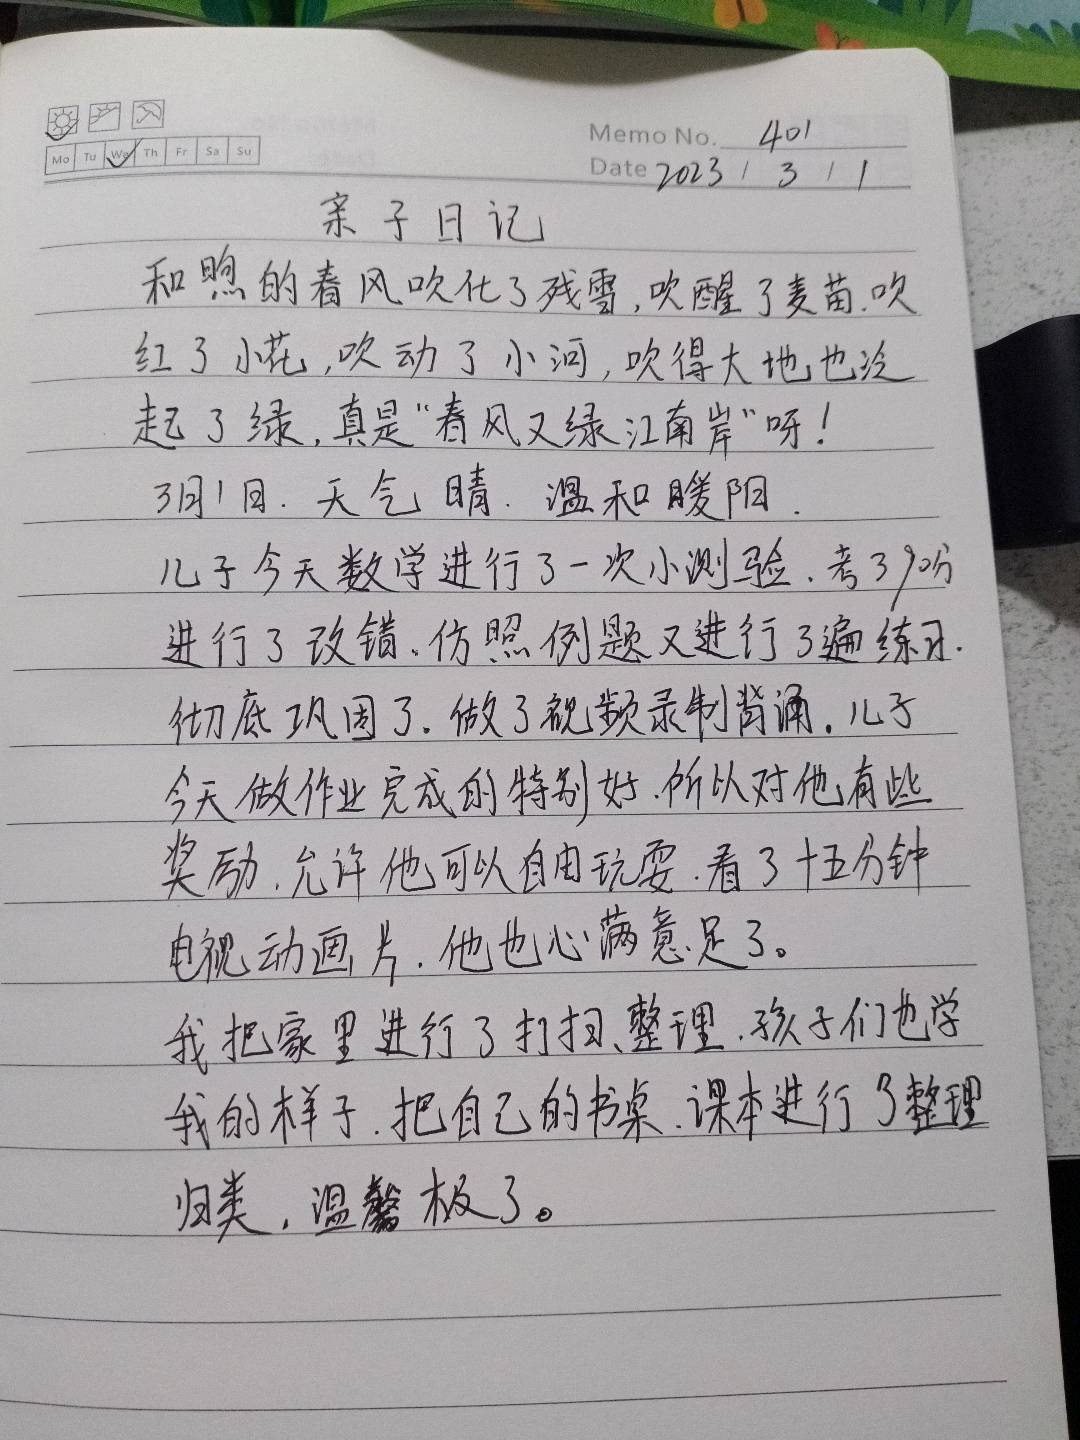 Mo Tu We Th Fr Sa Su
Memo No. 401
Date 2023 / 3 / 1
亲子日记
和煦的春风吹化了残雪,吹醒了麦苗.吹
红了小花,吹动了小河,吹得大地也泛
起了绿,真是“春风又绿江南岸”呀!
3月1日. 天气晴. 温和暖阳.
儿子今天数学进行了一次小测验.考了90分
进行了改错.仿照例题又进行了遍练习.
彻底巩固了.做了视频录制背诵.儿子
今天做作业完成的特别好.所以对他有些
奖励.允许他可以自由玩耍.看了十五分钟
电视动画片.他也心满意足了。
我把家里进行了打扫、整理.孩子们也学
我的样子.把自己的书桌.课本进行了整理
归类,温馨极了。